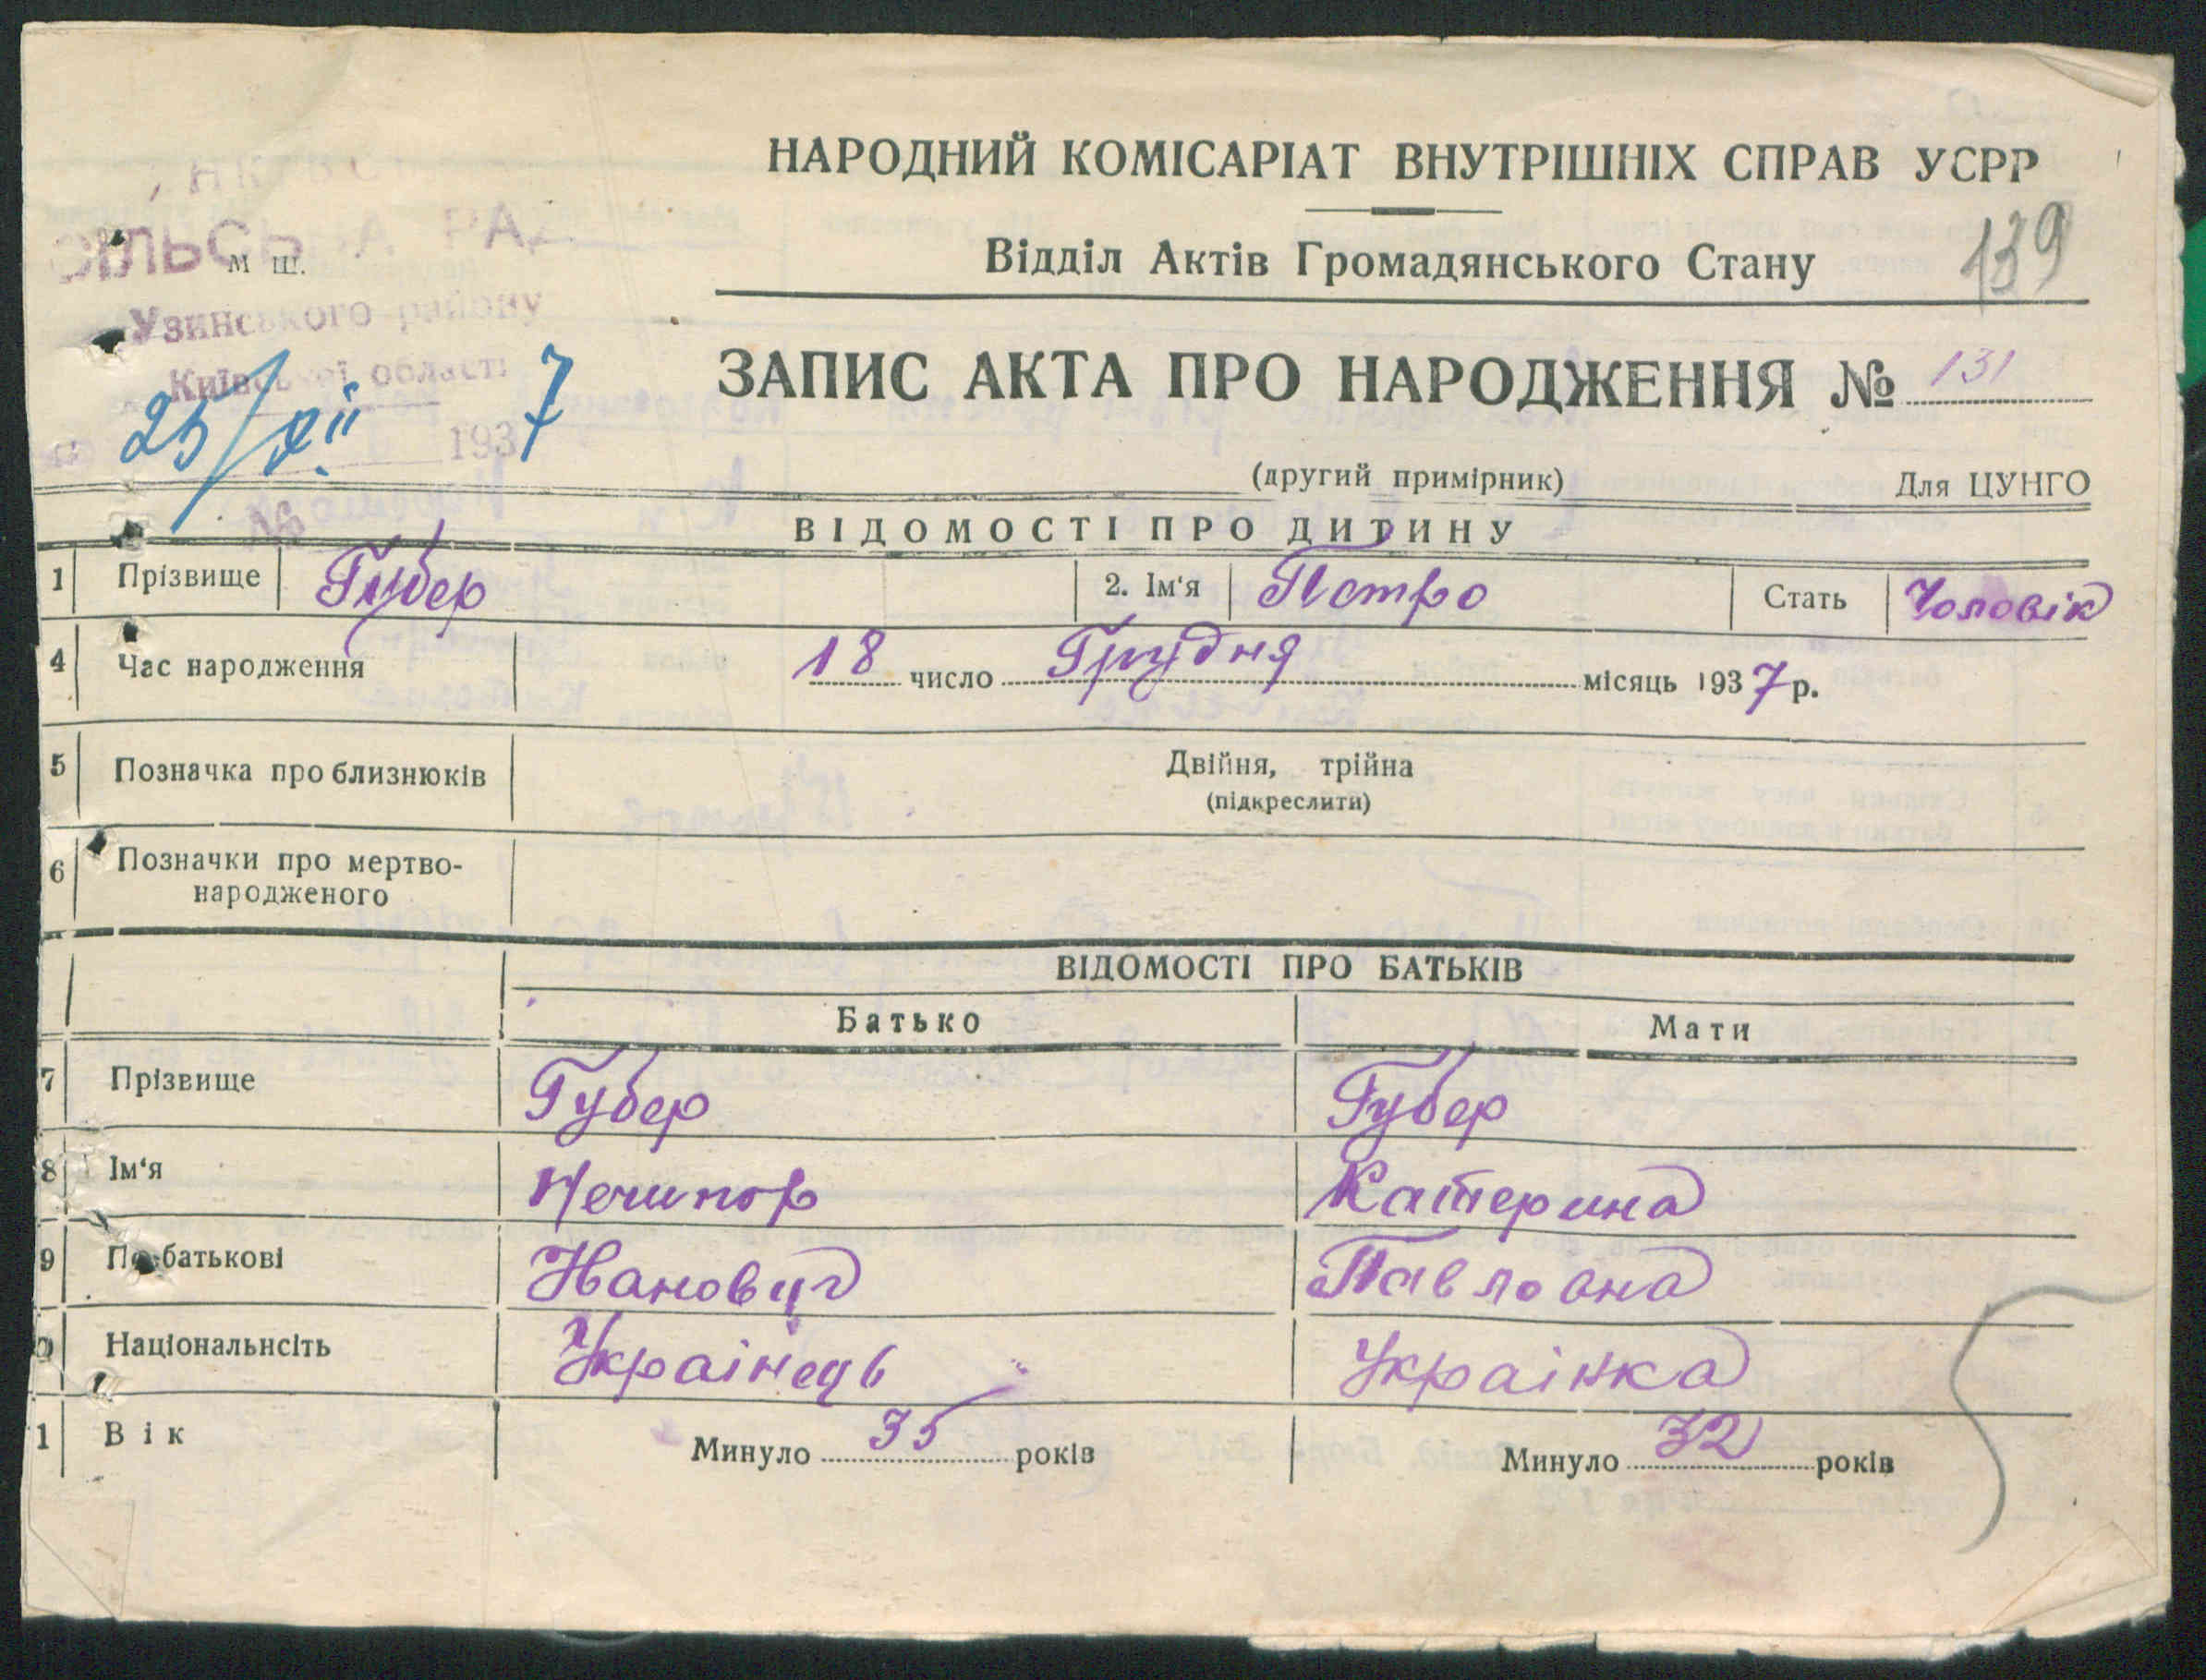 НАРОДНИЙ КОМІСАРІАТ ВНУТРІШНІХ СПРАВ УСРР
Відділ Актів Громадянського Стану
139
СІЛЬСЬКА РАДА
М Ш.
Узинського району
Київської області
25/XII 1937
ЗАПИС АКТА ПРО НАРОДЖЕННЯ № 131
(другий примірник)
Для ЦУНГО
ВІДОМОСТІ ПРО ДИТИНУ
1 Прізвище Губер 2. Ім'я Петро Стать Чоловік
4 Час народження 18 число Грудня місяць 1937 р.
5 Позначка про близнюків Двійня, трійна
(підкреслити)
6 Позначки про мертво-
народженого
ВІДОМОСТІ ПРО БАТЬКІВ
Батько Мати
7 Прізвище Губер Губер
8 Ім'я Нечипор Катерина
9 По батькові Іванович Павловна
0 Національнсіть Украінець Украінка
1 Вік Минуло 35 років Минуло 32 років